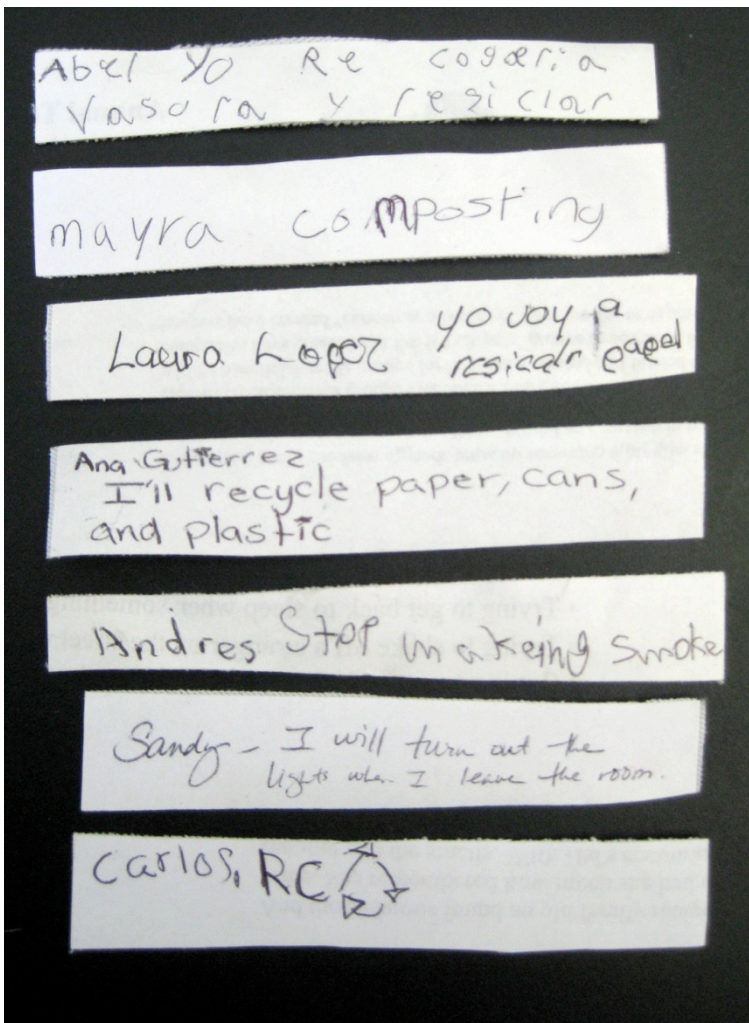 Abel Yo Re cogeria
Vasura y resiclar
mayra composting
Laura Lopez yo voy a
resicalr papel
Ana Gutierrez
I'll recycle paper, cans,
and plastic
Andres Stop makeing smoke
Sandy - I will turn out the
lights when I leave the room.
Carlos, RC
Trying to get back to sleep when something